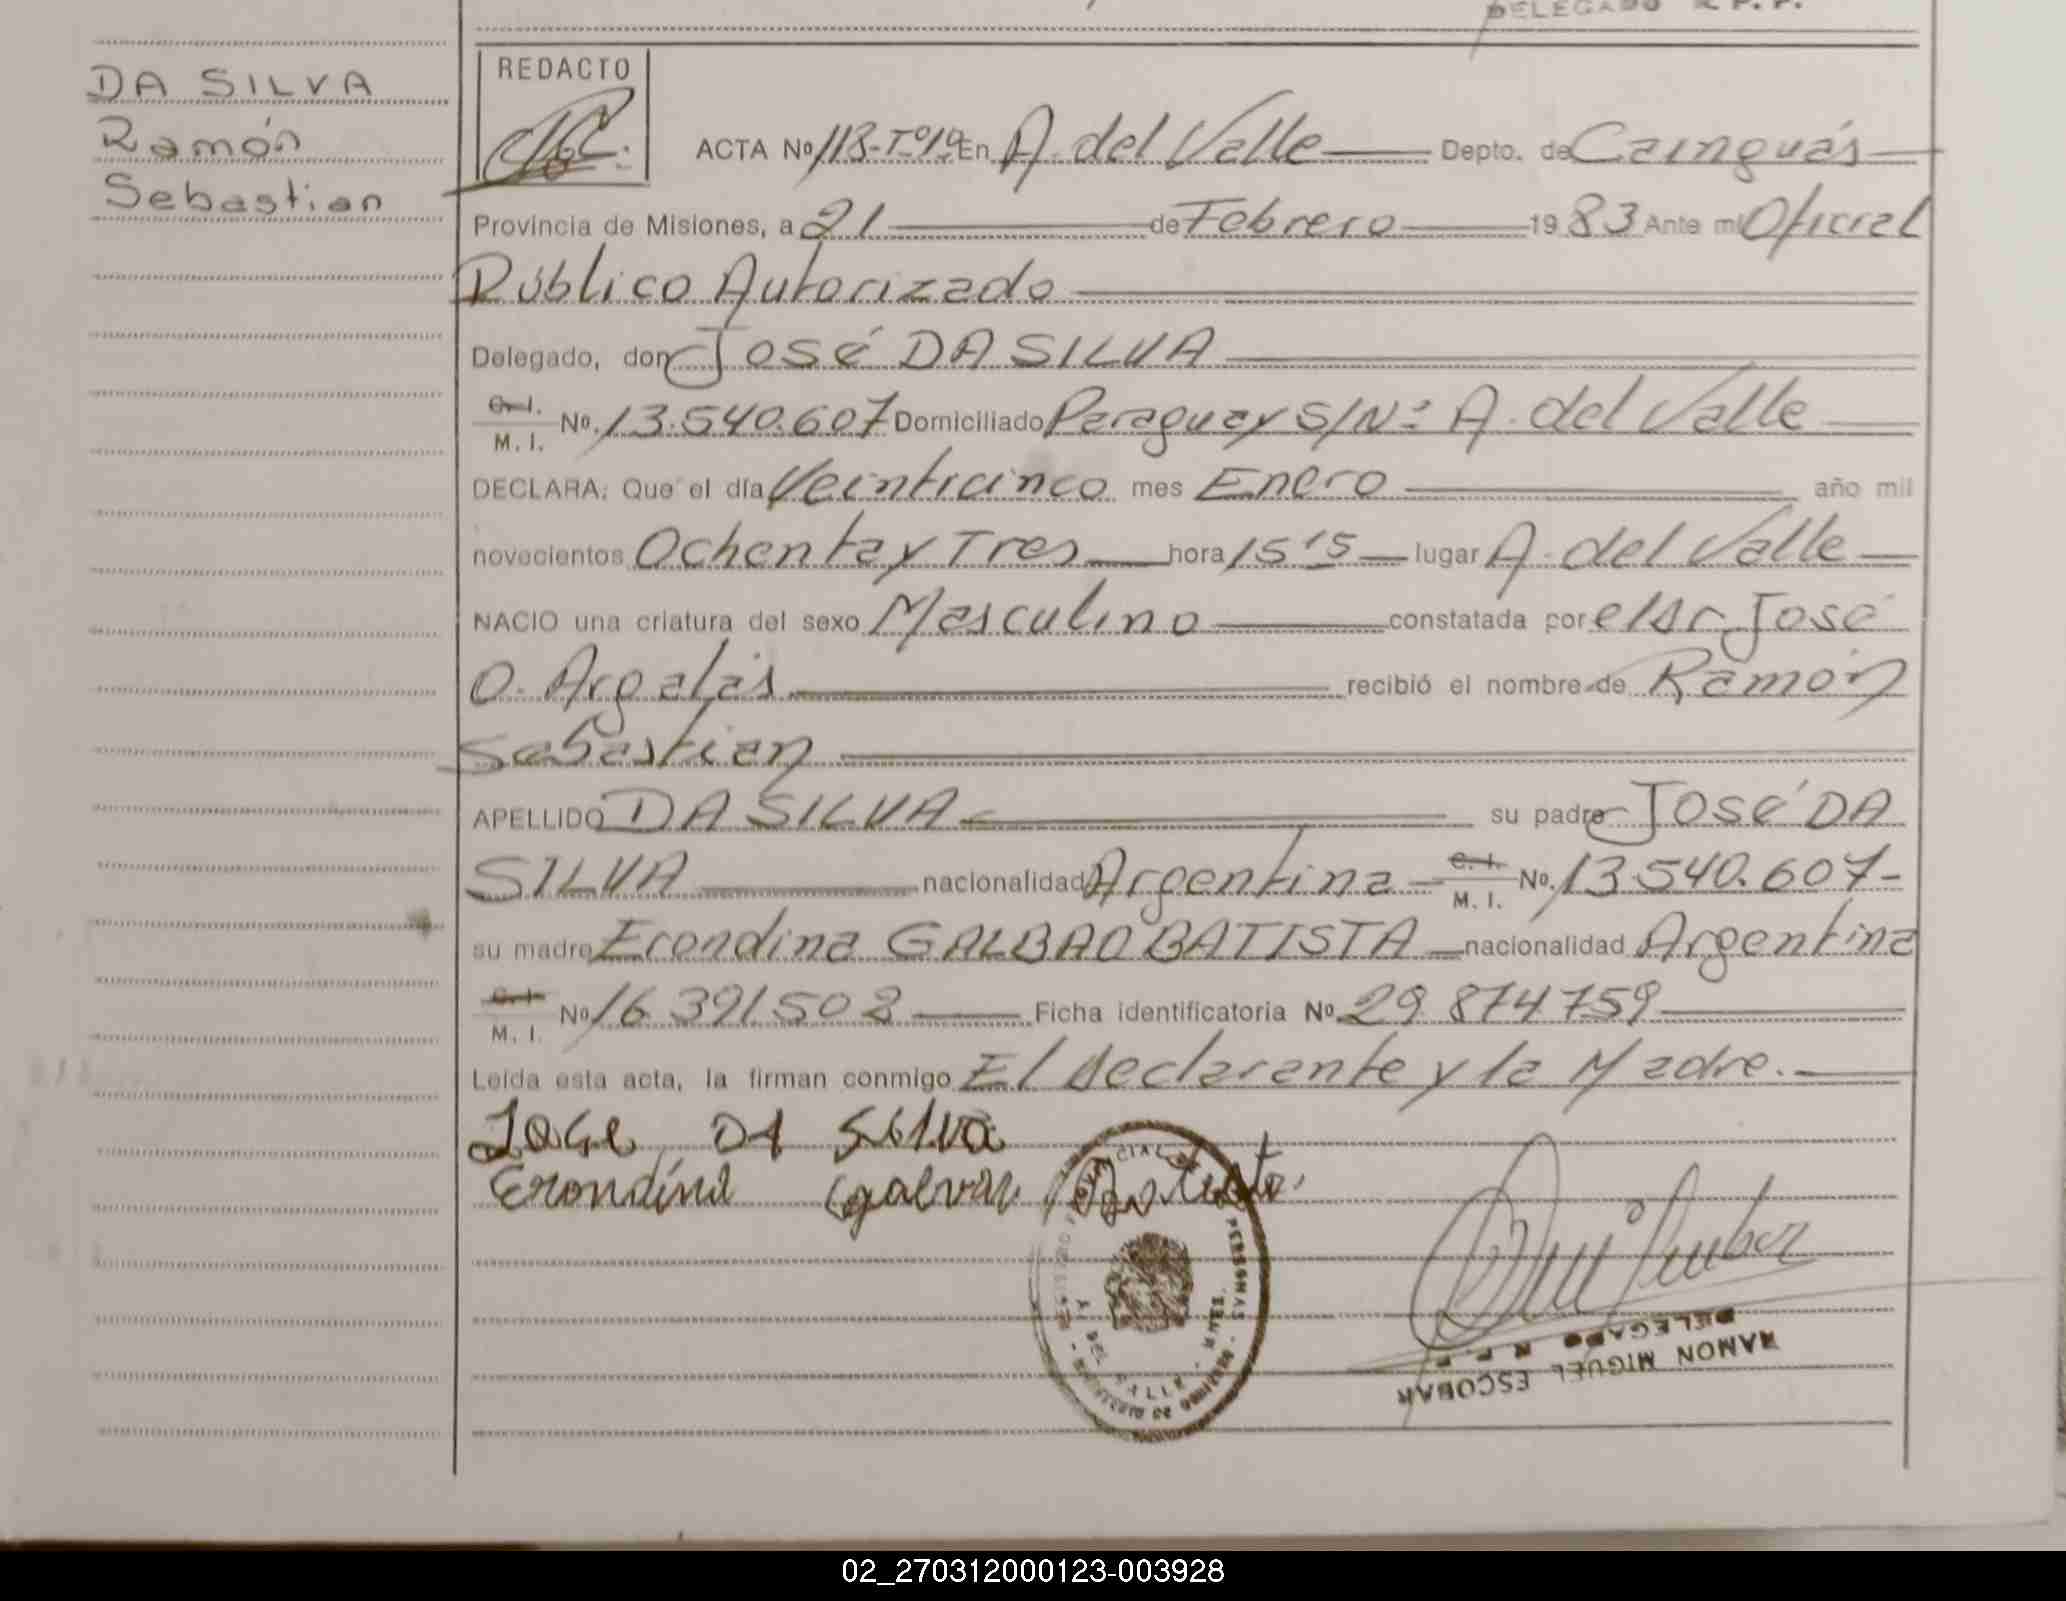 DELEGADO R.P.P.
DA SILVA
Ramón
Sebastian
REDACTO
ACTA No 118-Tº1º En A. del Valle Depto. de Cainguás
Provincia de Misiones, a 21 de Febrero 1983 Ante mi Oficial
Público Autorizado
Delegado, don José DA SILVA
C. I. M. I. No. 13.540.607 Domiciliado Paraguay S/Nº A. del Valle
DECLARA: Que el día Veinticinco mes Enero año mil
novecientos Ochenta y Tres hora 15 15 lugar A. del Valle
NACIO una criatura del sexo Masculino constatada por el sr José
O. Argalás recibió el nombre de Ramón
Sebastian
APELLIDO DA SILVA su padre José DA
SILVA nacionalidad Argentina C. I. M. I. No. 13.540.607-
su madre Erondina GALBAO BATISTA nacionalidad Argentina
C. I. M. I. No 16 391 508 Ficha identificatoria No 29.874759
Leída esta acta, la firman conmigo El declarante y la Madre.
JOSE DA SILVA
Erondina galvao Batista
A. DEL VALLE
PERSONAS
RAMON MIGUEL ESCOBAR
DELEGADO R.P.P.
02_270312000123-003928